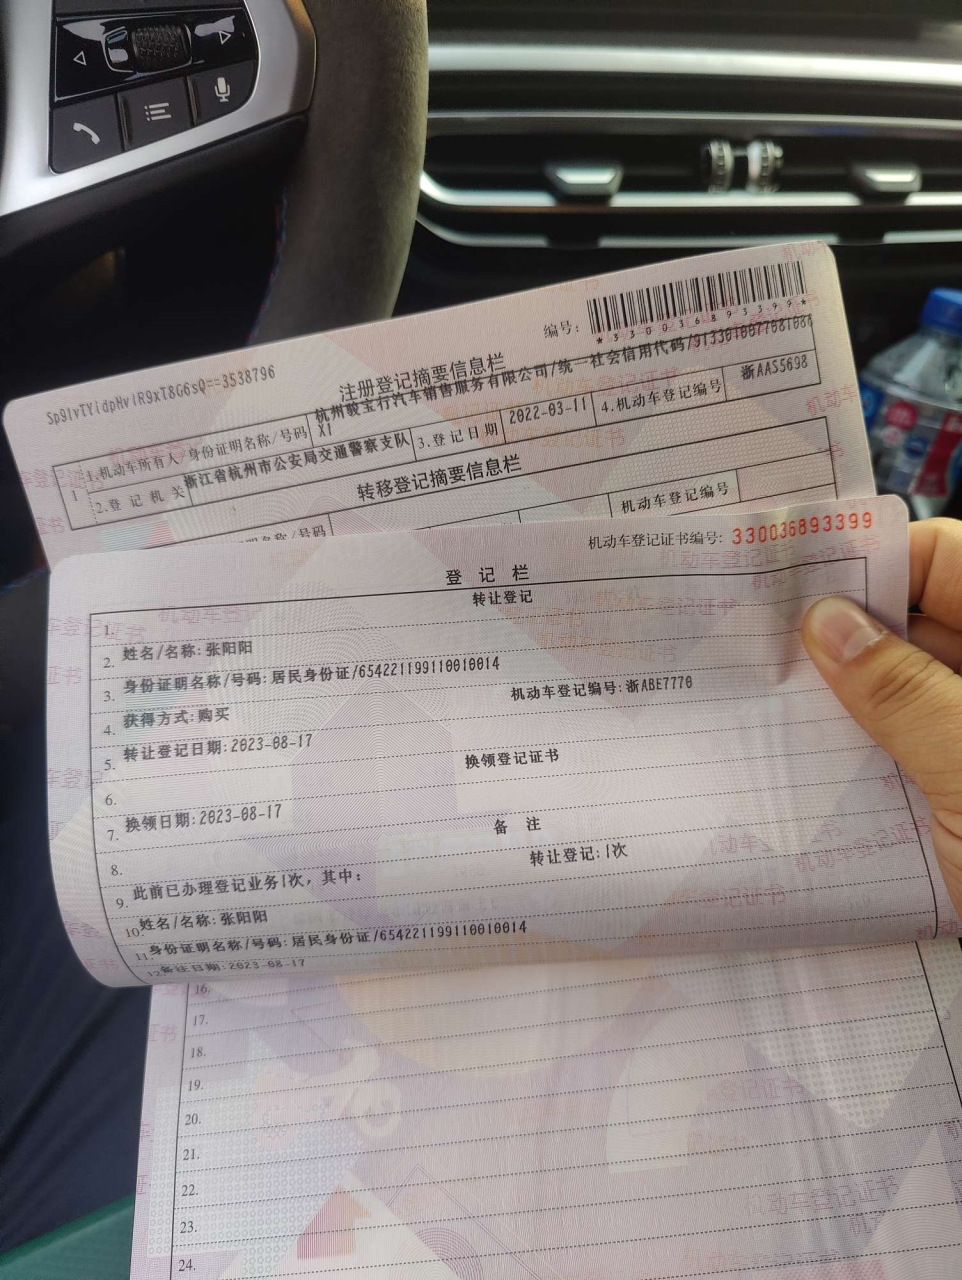 编号:
*330036893399*
Sp9IvTYidpHvIR9xT8G6sQ==3538796
注册登记摘要信息栏
1
1.机动车所有人/身份证明名称/号码
杭州骏宝行汽车销售服务有限公司/统一社会信用代码/91330100770810866
X1
2.登记机关
浙江省杭州市公安局交通警察支队
3.登记日期
2022-03-11
4.机动车登记编号
浙AAS5698
转移登记摘要信息栏
机动车登记编号
机动车登记证书编号: 330036893399
登记栏
转让登记
1.
2. 姓名/名称:张阳阳
3. 身份证明名称/号码:居民身份证/654221199110010014
4. 获得方式:购买 机动车登记编号:浙ABE7770
5. 转让登记日期:2023-08-17
换领登记证书
6.
7. 换领日期:2023-08-17
备注
8.
9. 此前已办理登记业务1次,其中: 转让登记:1次
10. 姓名/名称:张阳阳
11. 身份证明名称/号码:居民身份证/654221199110010014
12. 备注日期:2023-08-17
16.
17.
18.
19.
20.
21.
22.
23.
24.